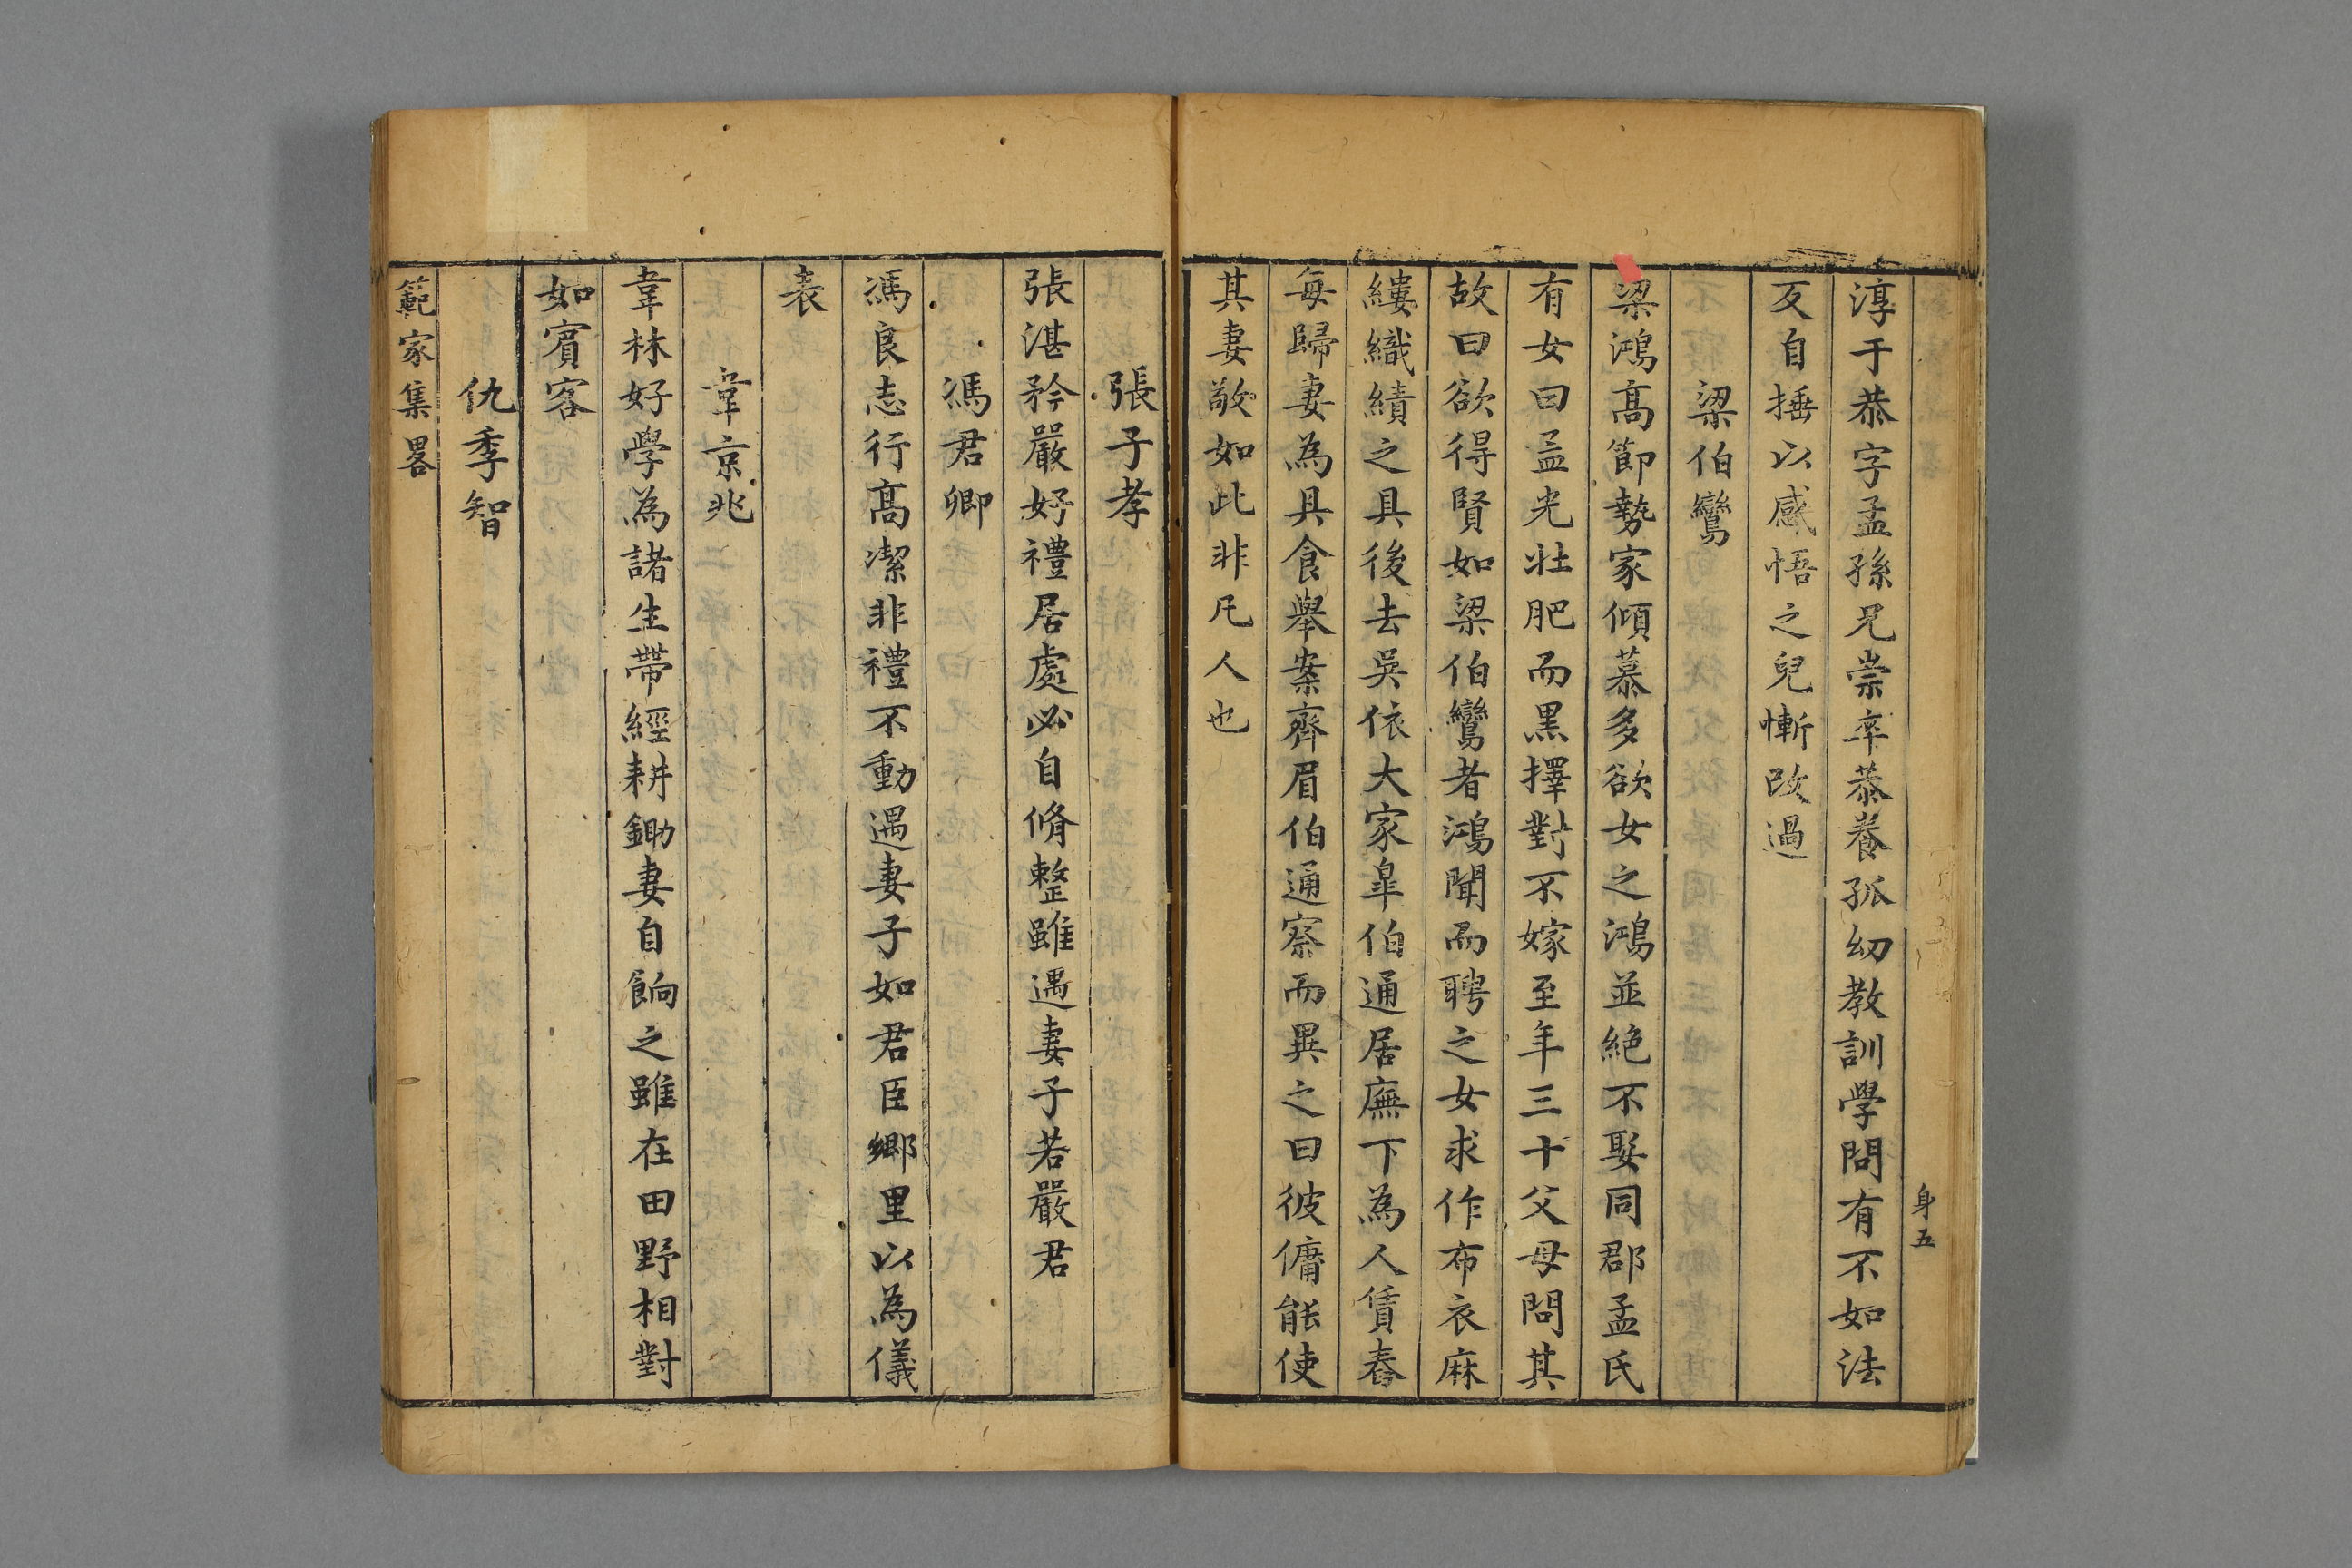 身五
淳于恭字孟孫兄崇卒恭養孤幼教訓學問有不如法
反自捶以感悟之兒慚改過
梁伯鸞
梁鴻髙節勢家傾慕多欲女之鴻並絶不娶同郡孟氏
有女曰孟光壯肥而黑擇對不嫁至年三十父母問其
故曰欲得賢如梁伯鸞者鴻聞而聘之女求作布衣麻
縷織績之具後去吳依大家皐伯通居廡下為人賃舂
每歸妻為具食舉案齊眉伯通察而異之曰彼傭能使
其妻敬如此非凡人也
張子孝
張湛矜嚴好禮居處必自脩整雖遇妻子若嚴君
馮君卿
馮良志行髙潔非禮不動遇妻子如君臣鄉里以為儀
表
韋京兆
韋林好學為諸生帶經耕鋤妻自餉之雖在田野相對
如賓客
仇季智
範家集畧